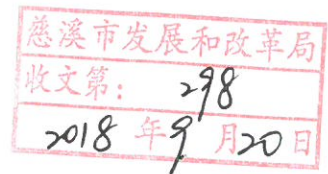 慈溪市发展和改革局
收文第：298
2018年9月20日